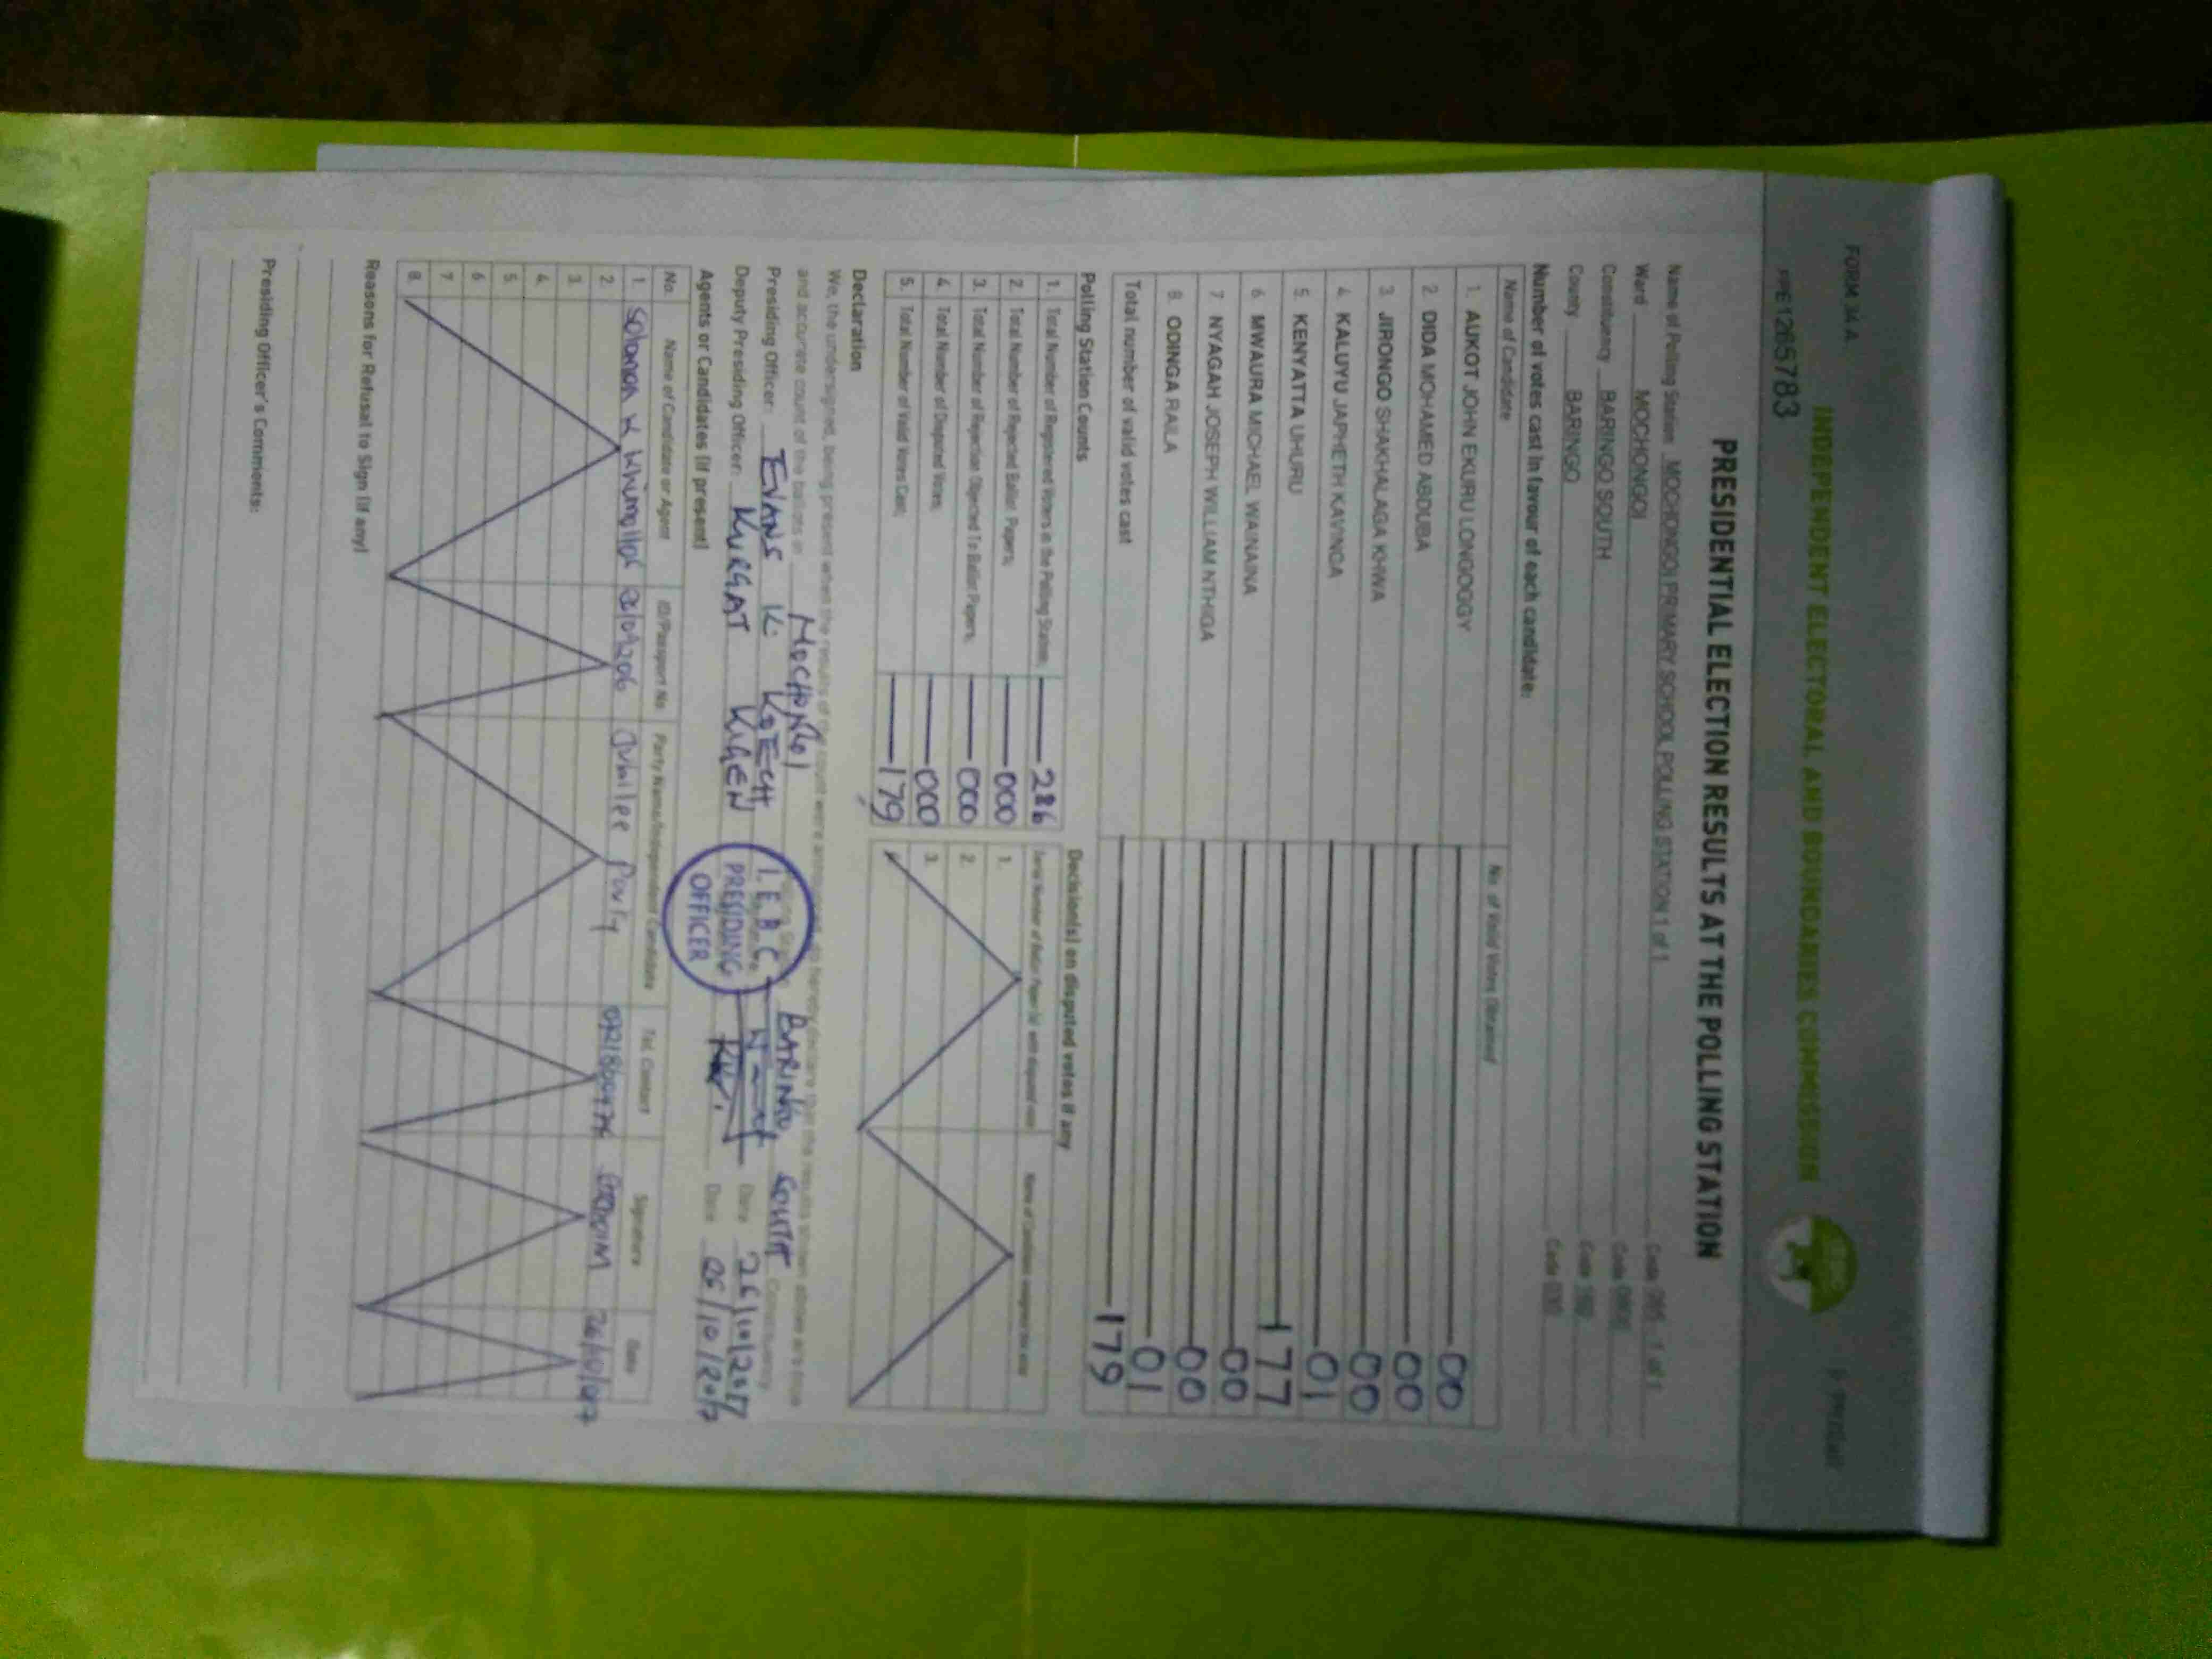 FORM 34 A
INDEPENDENT ELECTORAL AND BOUNDARIES COMMISSION
PPE 1265783
PRESIDENTIAL ELECTION RESULTS AT THE POLLING STATION
Name of Polling Station MOCHONGOI PRIMARY SCHOOL POLLING STATION 1 of 1 Code
Ward MOCHONGOI Code
Constituency BARINGO SOUTH Code
County BARINGO Code
Number of votes cast in favour of each candidate:
Name of Candidate No. of Valid Votes Obtained
1. AUKOT JOHN EKURU LONGOGGY 00
2. DIDA MOHAMED ABDUBA 00
3. JIRONGO SHAKHALAGA KHWA 00
4. KALUYU JAPHETH KAVINGA 01
5. KENYATTA UHURU 177
6. MWAURA MICHAEL WAINAINA 00
7. NYAGAH JOSEPH WILLIAM NTHIGA 00
8. ODINGA RAILA 01
Total number of valid votes cast 179
Polling Station Counts Decision(s) on disputed votes if any
1. Total Number of Registered Voters in the Polling Station; 286
2. Total Number of Rejected Ballot Papers; 000 1.
3. Total Number of Rejection Objected To Ballot Papers; 000 2.
4. Total Number of Disputed Votes; 000 3.
5. Total Number of Valid Votes Cast; 179
Declaration
We, the undersigned, being present when the results of the count were announced, do hereby declare that the results shown above are true
and accurate count of the ballots in MOCHONGOI BARINGO SOUTH Constituency
Presiding Officer: EVANS K. KOECH Date 26/10/2017
Deputy Presiding Officer: KURGAT KIGEN Date 26/10/2017
I.E.B.C
PRESIDING
OFFICER
Agents or Candidates (if present)
No. Name of Candidate or Agent ID/Passport No. Party Name/Independent Candidate Tel. Contact Signature Date
1. Solomon K Jubilee Party
2.
3.
4.
5.
6.
7.
8.
Reasons for Refusal to Sign (if any)
Presiding Officer's Comments: